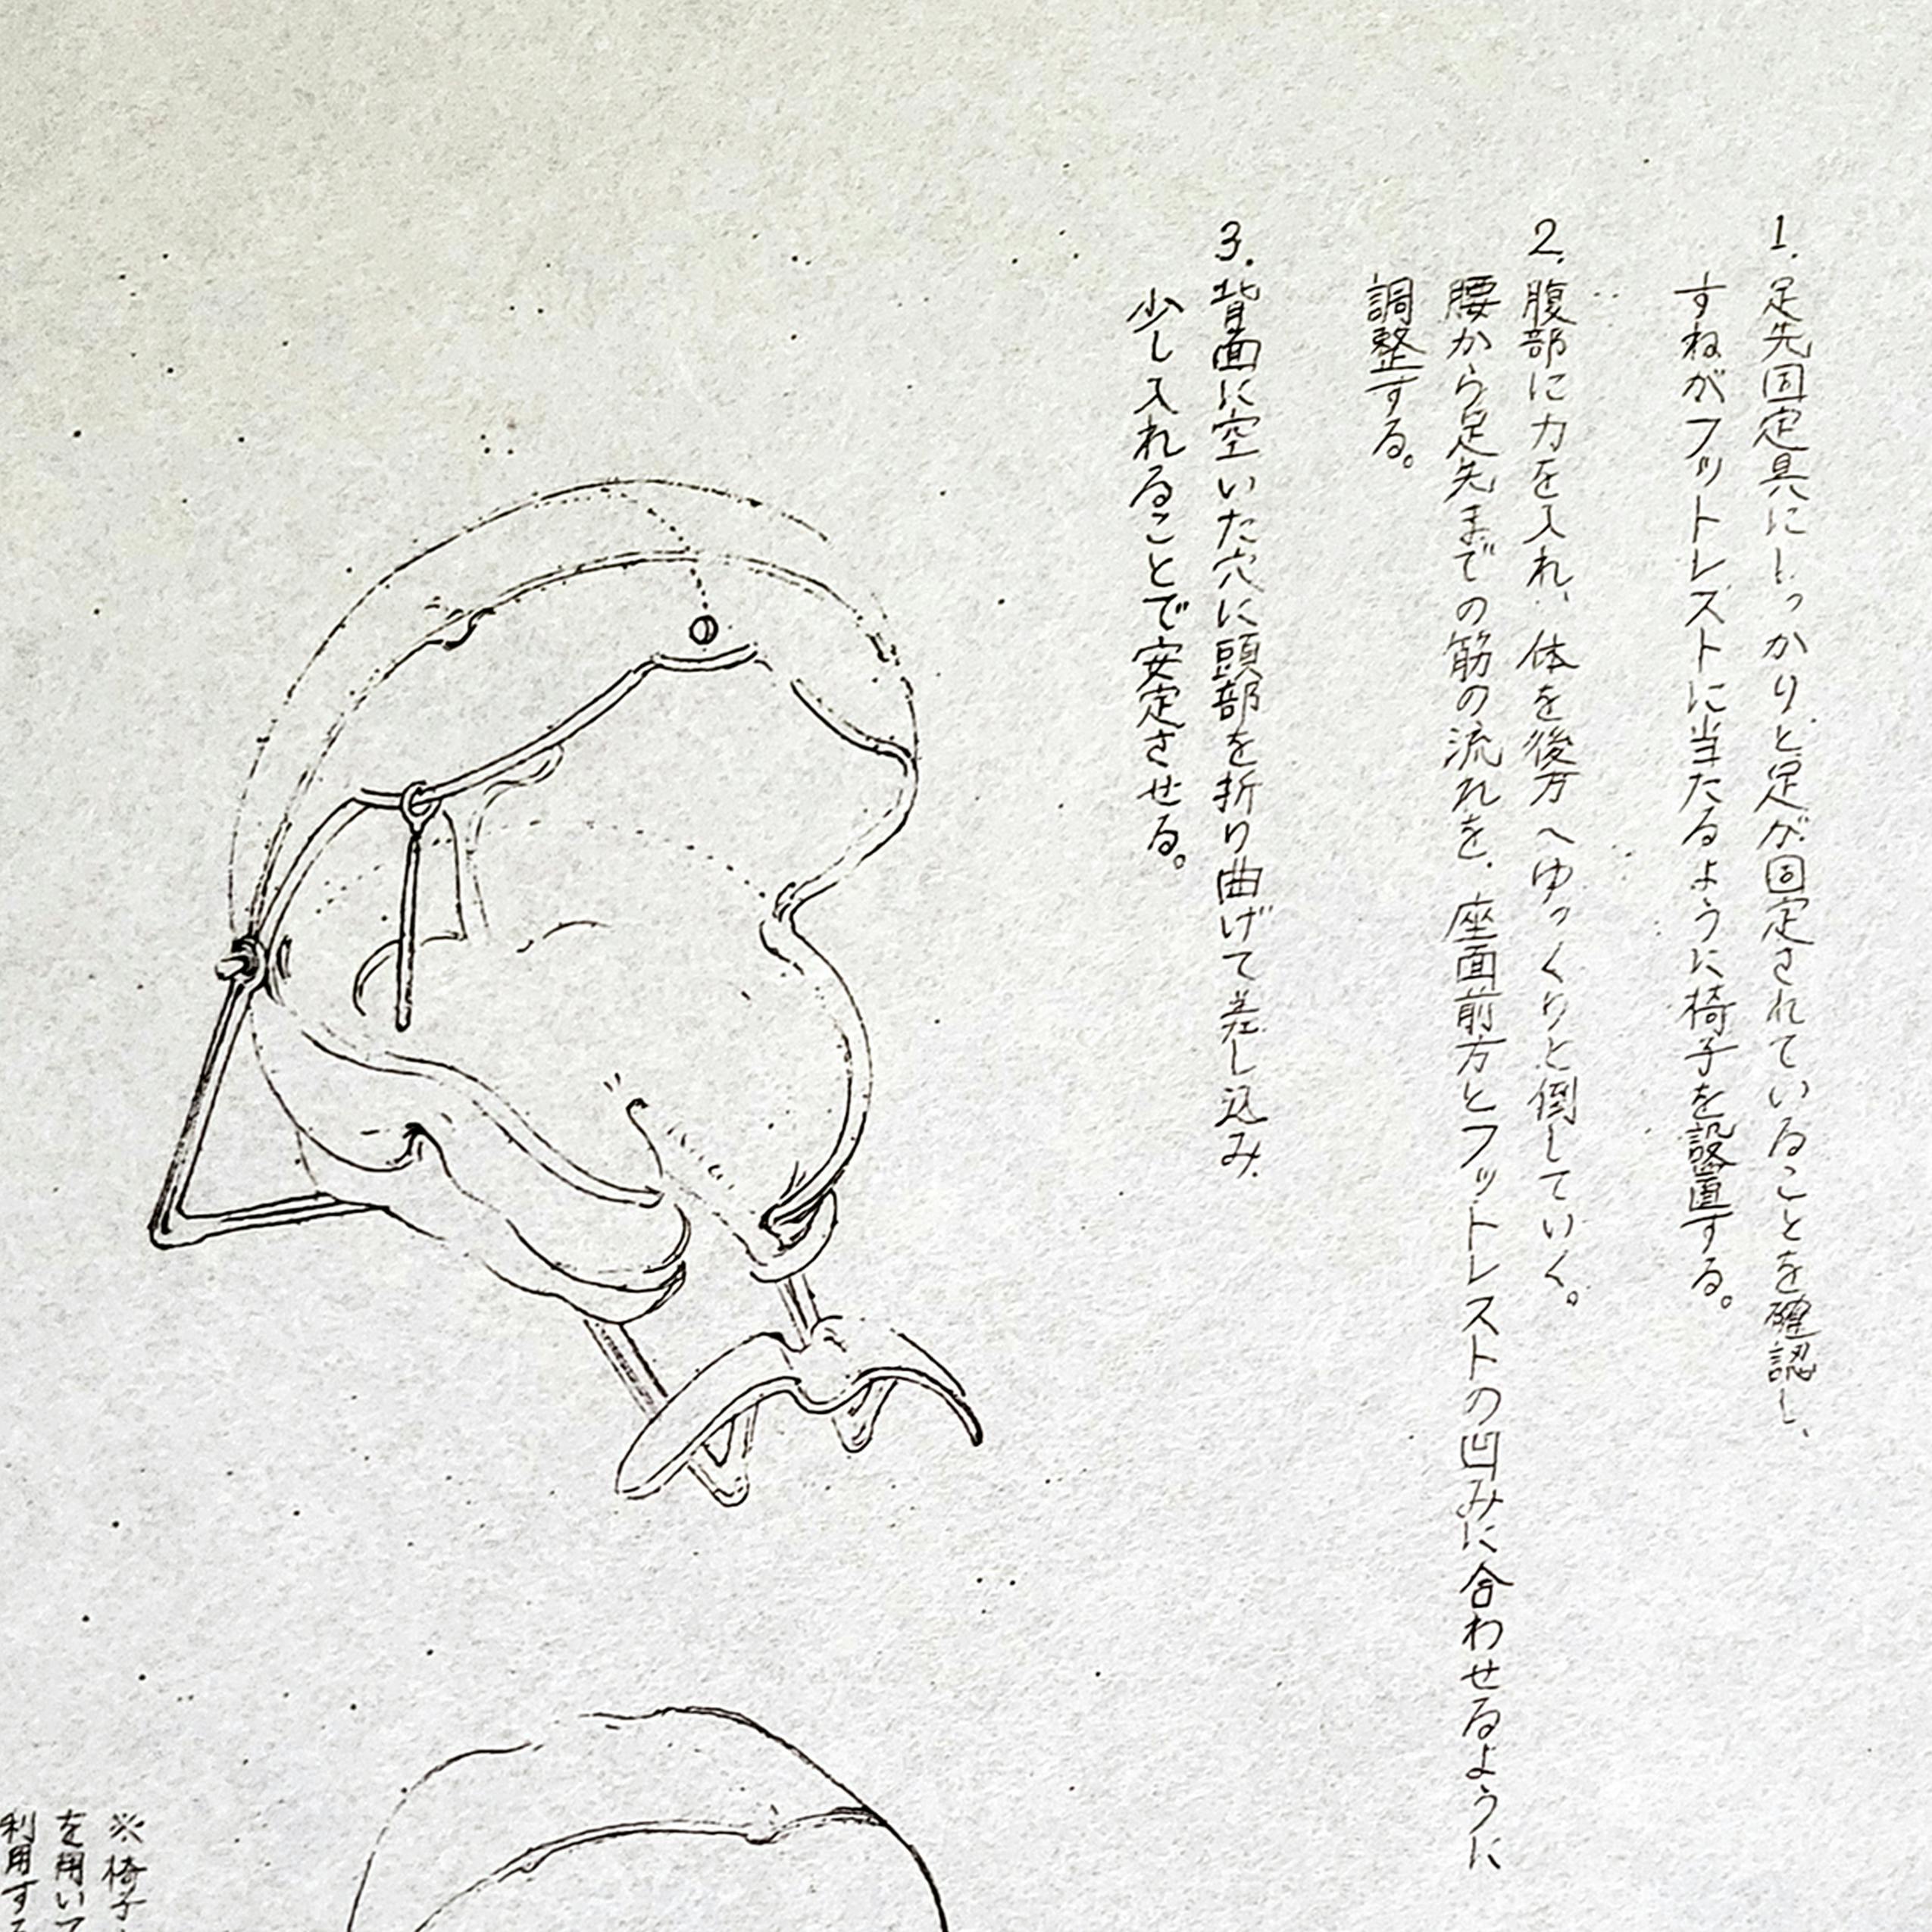 1. 足先固定具にしっかりと足が固定されていることを確認し、
すねがフットレストに当たるように椅子を設置する。
2. 腹部に力を入れ、体を後方へゆっくりと倒していく。
腰から足先までの筋の流れを、座面前方とフットレストの凹みに合わせるように
調整する。
3. 背面に空いた穴に頭部を折り曲げて差し込み、
少し入れることで安定させる。
※椅子
を用いて
利用する